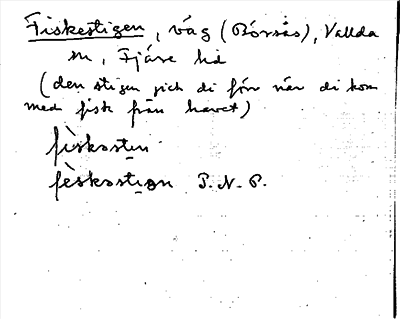 Fiskestigen, väg (Börsås), Vallda
sn, Fjäre hd
(den stigen gick di förr när di kom
med fisk från havet)
fìskəstın
fèskəstıgən P.N.P.